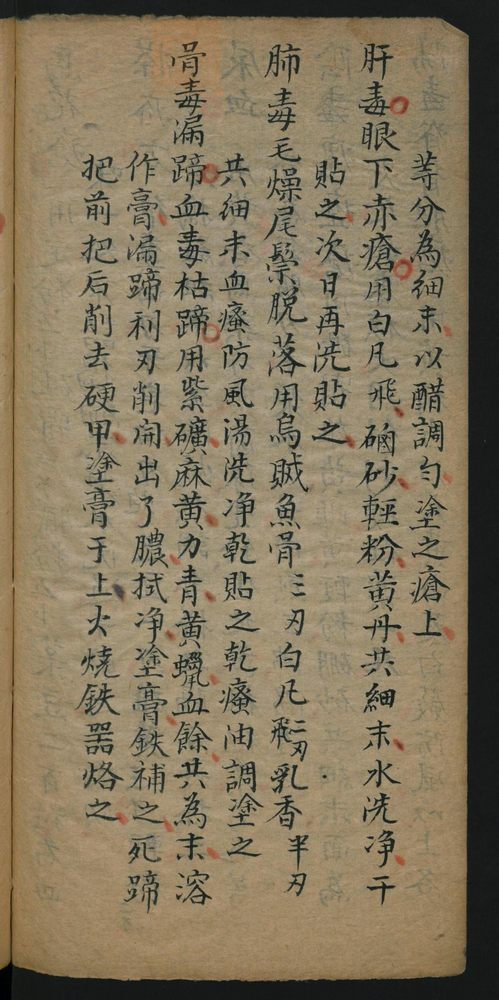 等分為細末以醋調勻塗之瘡上
肝毒眼下赤瘡用白凡飛硇砂輕粉黃丹共細末水洗净干
貼之次日再洗貼之
肺毒毛燥尾鬃脫落用烏賊魚骨三刄白凡飛二刄乳香半刄
共細末血瘙防風湯洗净乾貼之乾瘙油調塗之
骨毒漏蹄血毒枯蹄用紫礦麻黃力青黃蠟血餘共為末溶
作膏漏蹄利刃削開出了膿拭净塗膏鉄補之死蹄
把前把后削去硬甲塗膏于上火燒鉄器烙之